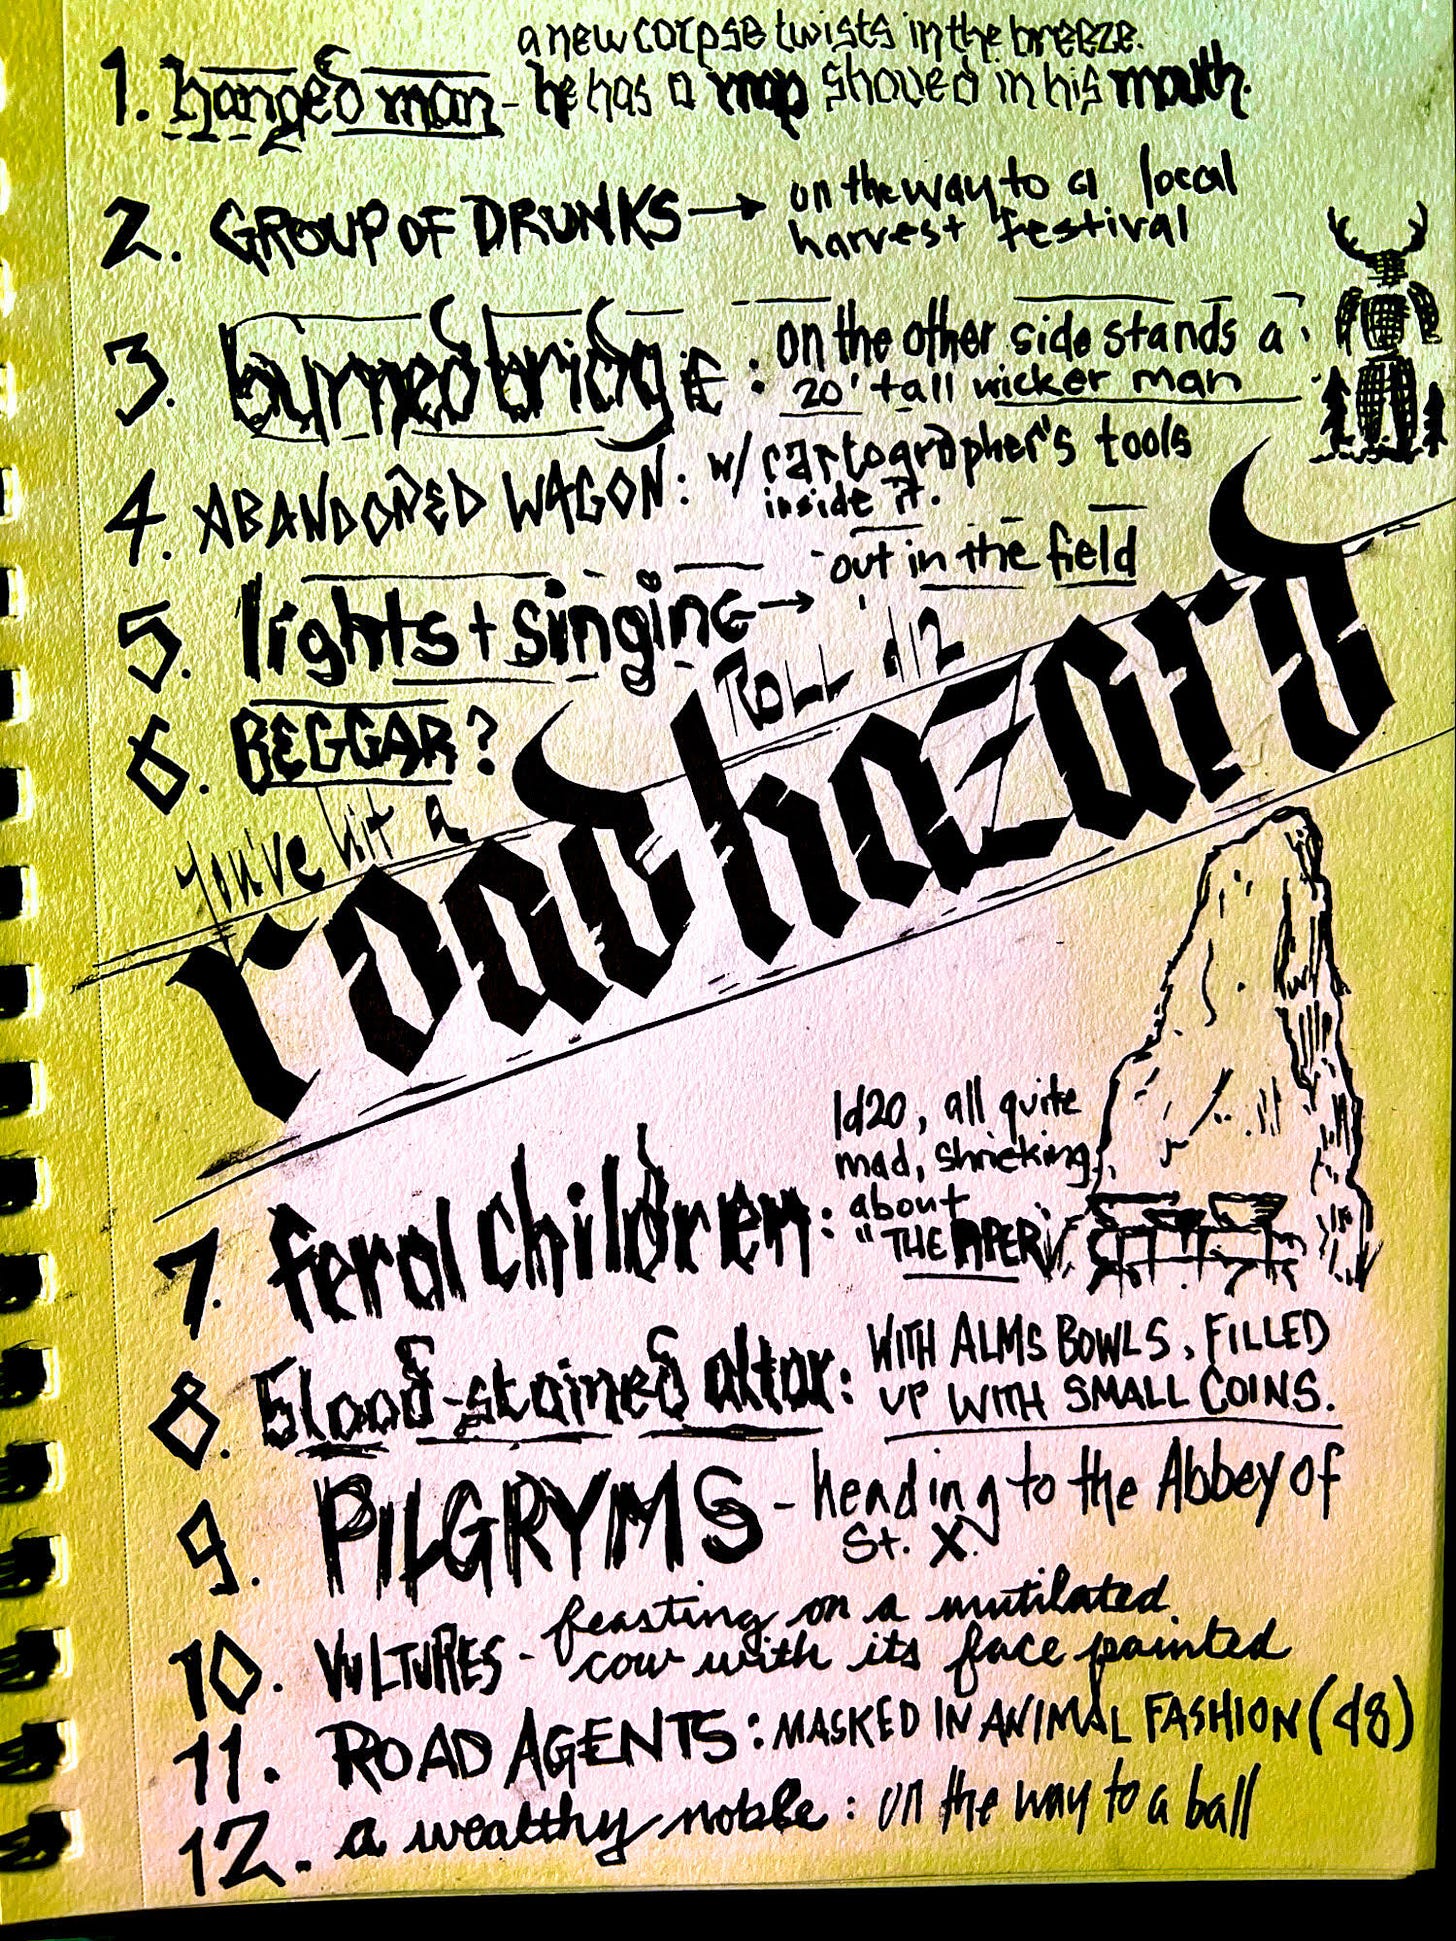 a new corpse twists in the breeze.
1. hanged man - he has a map shoved in his mouth.
2. GROUP OF DRUNKS → on the way to a local
harvest festival
3. burned bridge : on the other side stands a
20' tall wicker man
4. ABANDONED WAGON: w/ cartographer's tools
inside it.
5. lights + singing → out in the field
6. BEGGAR?
ROLL d12
You've hit a
road hazard
7. feral children: 1d20, all quite
mad, shrieking
about
"THE PIPER"
8. Blood-stained altar: WITH ALMS BOWLS, FILLED
UP WITH SMALL COINS.
9. PILGRYMS - heading to the Abbey of
St. X.
10. VULTURES - feasting on a mutilated
cow with its face painted
11. ROAD AGENTS: MASKED IN ANIMAL FASHION (d8)
12. a wealthy noble: on the way to a ball